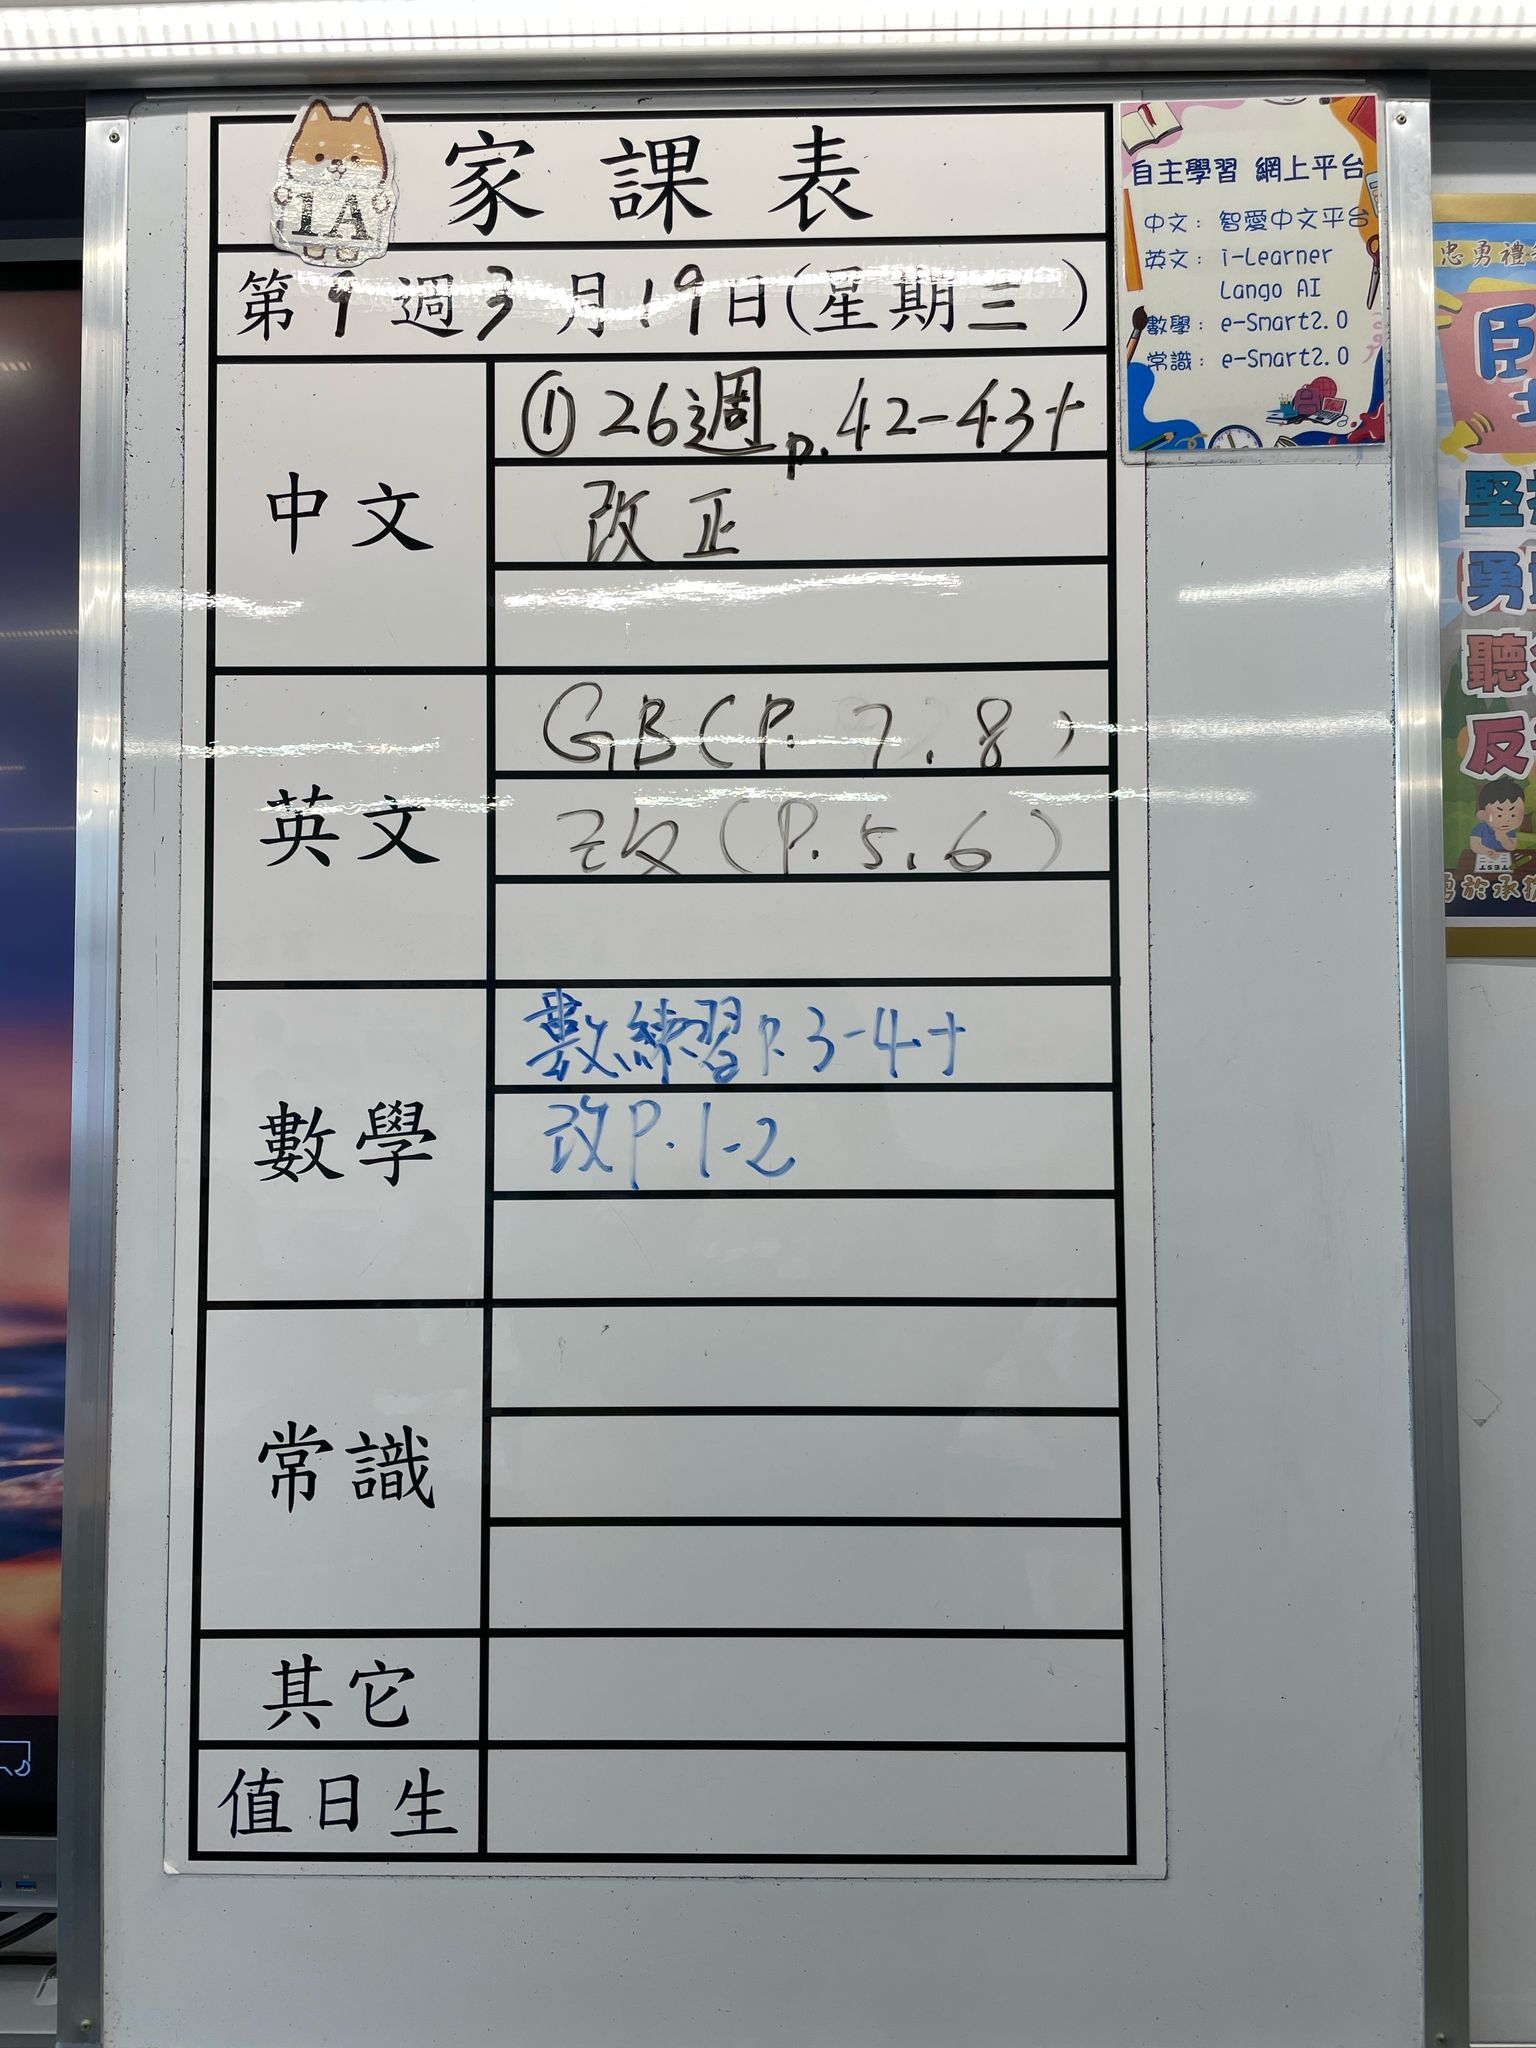 1A
家課表
第9週3月19日(星期三)
中文
①26週p.42-43+
改正
英文
GB(P.7.8)
改(P.5.6)
數學
數練習P.3-4+
改P.1-2
常識
其它
值日生
自主學習 網上平台
中文： 智愛中文平台
英文： i-Learner
Lango AI
數學： e-Smart2.0
常識： e-Smart2.0
忠勇禮
堅
勇
聽
反
TEST
勇於承擔